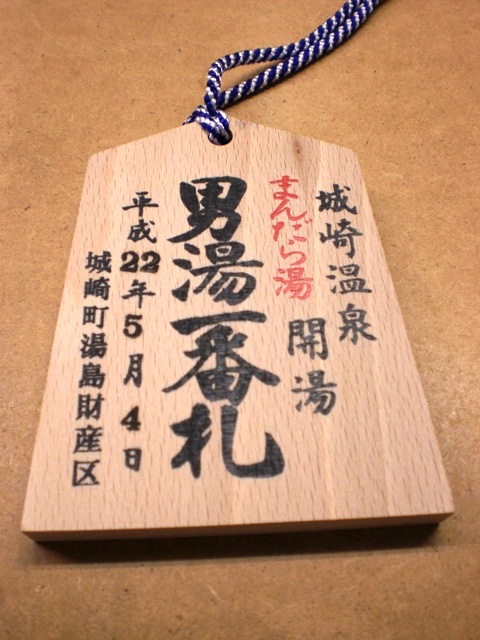 城崎温泉
まんだら湯 開湯
男湯一番札
平成22年5月4日
城崎町湯島財産区